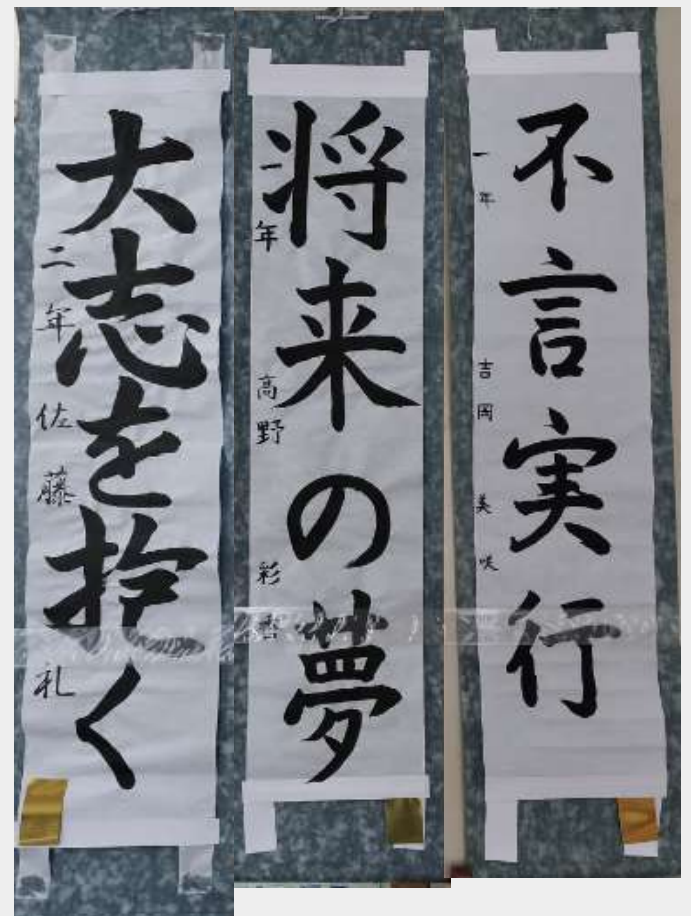 不言実行
一年 吉岡 美咲
将来の夢
年 高野 彩
大志を抱く
二年 佐藤 礼